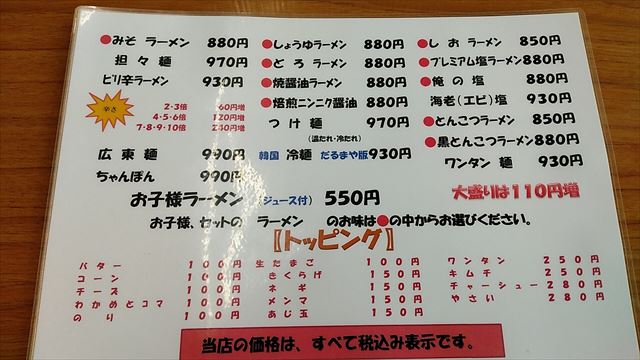 ●みそ ラーメン 880円 ●しょうゆラーメン 880円 ●しお ラーメン 850円
担々麺 970円 ●どろ ラーメン 880円 ●プレミアム塩ラーメン 880円
ピリ辛ラーメン 930円 ●焼醤油ラーメン 880円 ●俺の塩 880円
辛さ 2・3倍 60円増 ●焙煎ニンニク醤油 880円 海老(エビ)塩 930円
4・5・6倍 120円増 つけ麺 970円 ●とんこつラーメン 850円
7・8・9・10倍 240円増 (温たれ・冷たれ) ●黒とんこつラーメン 880円
広東麺 990円 韓国 冷麺 だるまや版 930円 ワンタン 麺 930円
ちゃんぽん 990円
お子様ラーメン (ジュース付) 550円 大盛りは110円増
お子様、セットの ラーメン のお味は●の中からお選びください。
【トッピング】
バター 100円 生たまご 100円 ワンタン 250円
コーン 100円 きくらげ 150円 キムチ 250円
チーズ 100円 ネギ 150円 チャーシュー 280円
わかめとコマ 100円 メンマ 150円 やさい 280円
のり 100円 あじ玉 150円
当店の価格は、すべて税込み表示です。